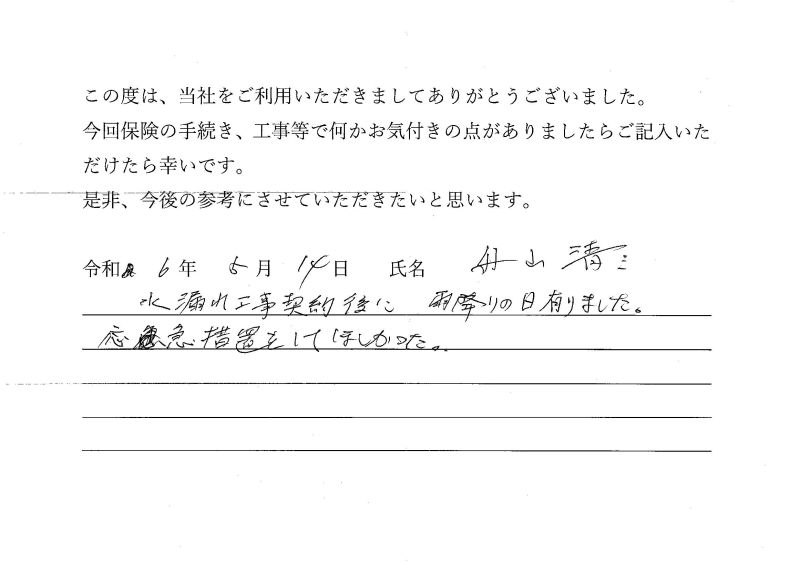 この度は、当社をご利用いただきましてありがとうございました。
今回保険の手続き、工事等で何かお気付きの点がありましたらご記入いた
だけたら幸いです。
是非、今後の参考にさせていただきたいと思います。
令和 6年 5月 14日 氏名 舟山 清三
水漏れ工事契約後に 雨降りの日有りました。
応急措置をしてほしかった。